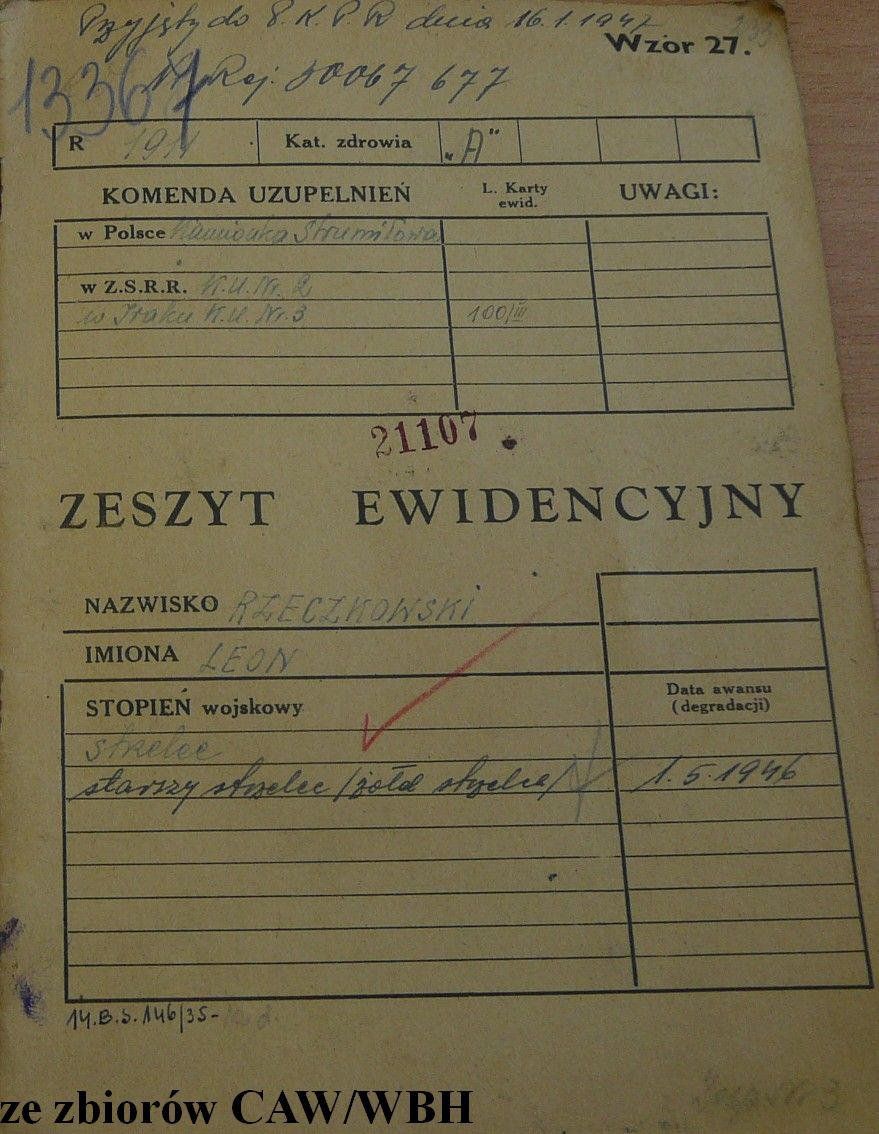 Przyjęty do P.K.P.R dnia 16.1.1947
Wzór 27.
13361
Nr Rej. 30067 677
R 1911 Kat. zdrowia „A"
KOMENDA UZUPEŁNIEŃ L. Karty ewid. UWAGI:
w Polsce Kamionka Strumiłowa
w Z.S.R.R. K.U.Nr. 2
w Iraku K.U.Nr.3 100/III
21107
ZESZYT EWIDENCYJNY
NAZWISKO RZECZKOWSKI
IMIONA LEON
STOPIEŃ wojskowy Data awansu (degradacji)
strzelec
starszy strzelec /żołd strzelca/ 1.5.1946
14.B.S.146/35-
ze zbiorów CAW/WBH